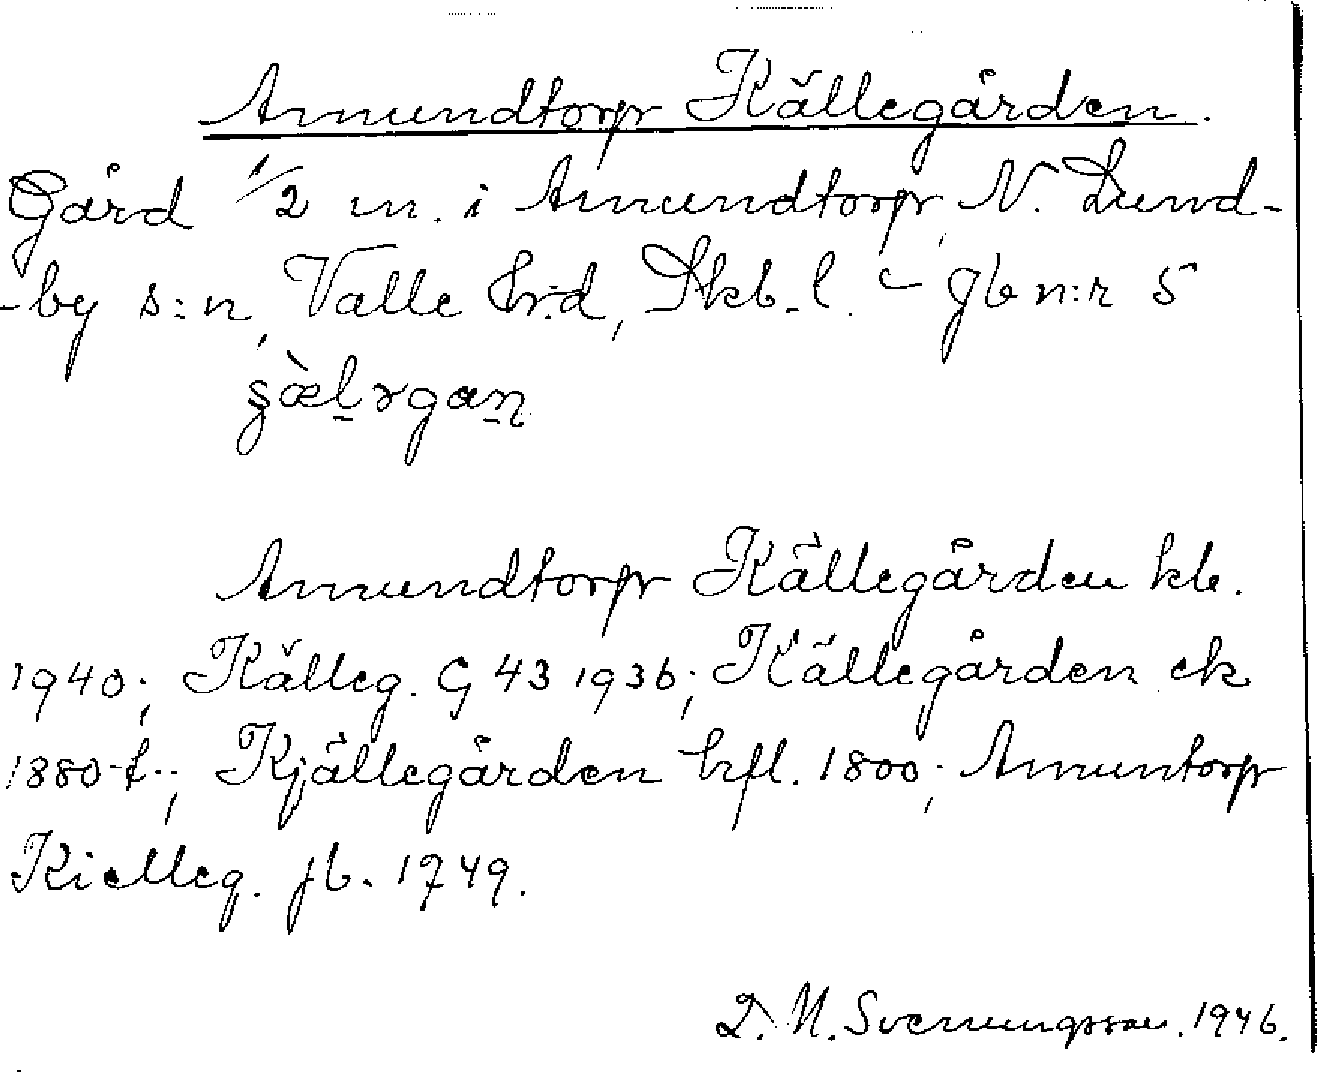 Amundtorp Källegården.
Gård 1/2 m. i Amundtorp, N. Lund-
-by s:n, Valle hrd, Skb. l. – jb n:r 5
Amundtorp Källegården kb.
1940; Källeg. G 43 1936; Källegården ek
1880-t.; Kjällegården hfl. 1800; Amuntorp
Kielleg. jb. 1749.
D. M. Svenungsson. 1946.